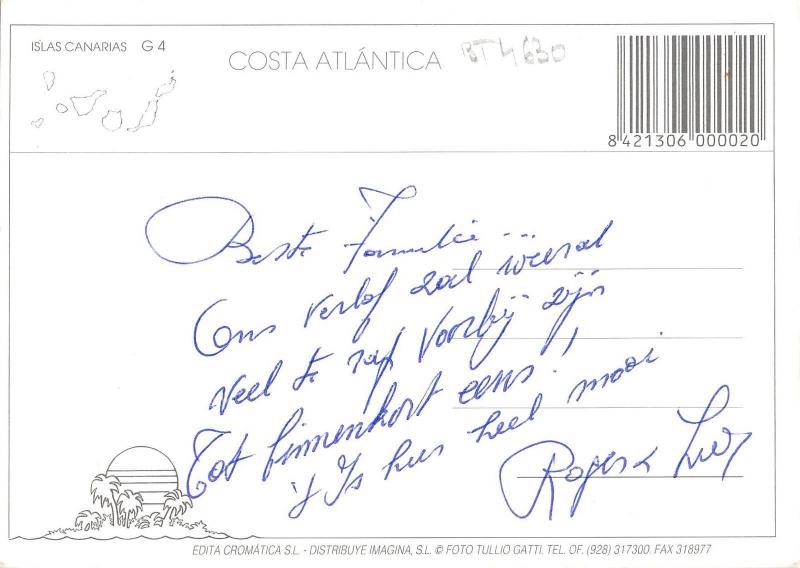 ISLAS CANARIAS G 4
COSTA ATLÁNTICA
BT4630
8 421306 000020
Beste Familie ...
Ons verlof zal weeral
veel te rap voorbij zijn
Tot binnenkort eens !
't Is hier heel mooi
Roger &
EDITA CROMÁTICA S.L. - DISTRIBUYE IMAGINA, S.L. © FOTO TULLIO GATTI. TEL. OF. (928) 317300. FAX 318977